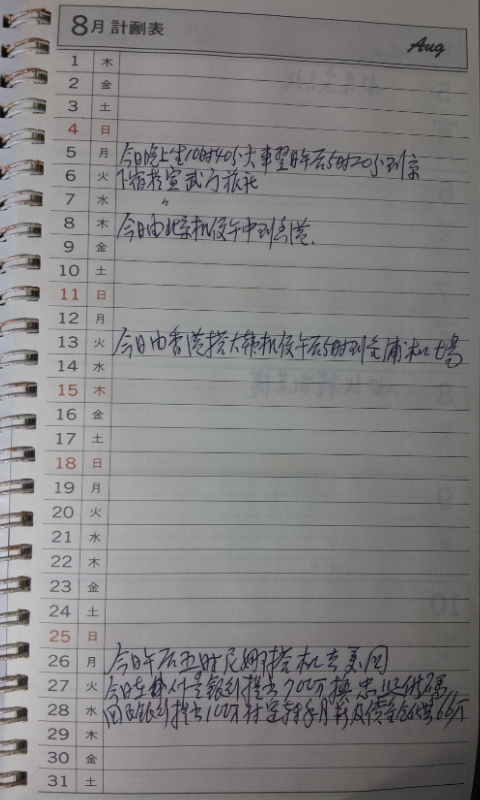 8月 計劃表 Aug
1 木
2 金
3 土
4 日
5 月 今日晚上坐10时40分火車翌日午后5时20分到京
6 火 下宿於宣武门旅社
7 水 〃
8 木 今日由北京机位午中到香港.
9 金
10 土
11 日
12 月
13 火 今日由香港搭大韓机位午后5时到金浦机場
14 水
15 木
16 金
17 土
18 日
19 月
20 火
21 水
22 木
23 金
24 土
25 日
26 月 今日午后五时 搭机去美国
27 火 今日在 银行提出700万换
28 水 银行提出100万付
29 木
30 金
31 土